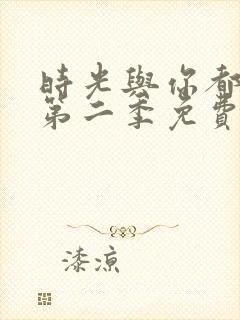 時光與你都
第二季免費
漆涼